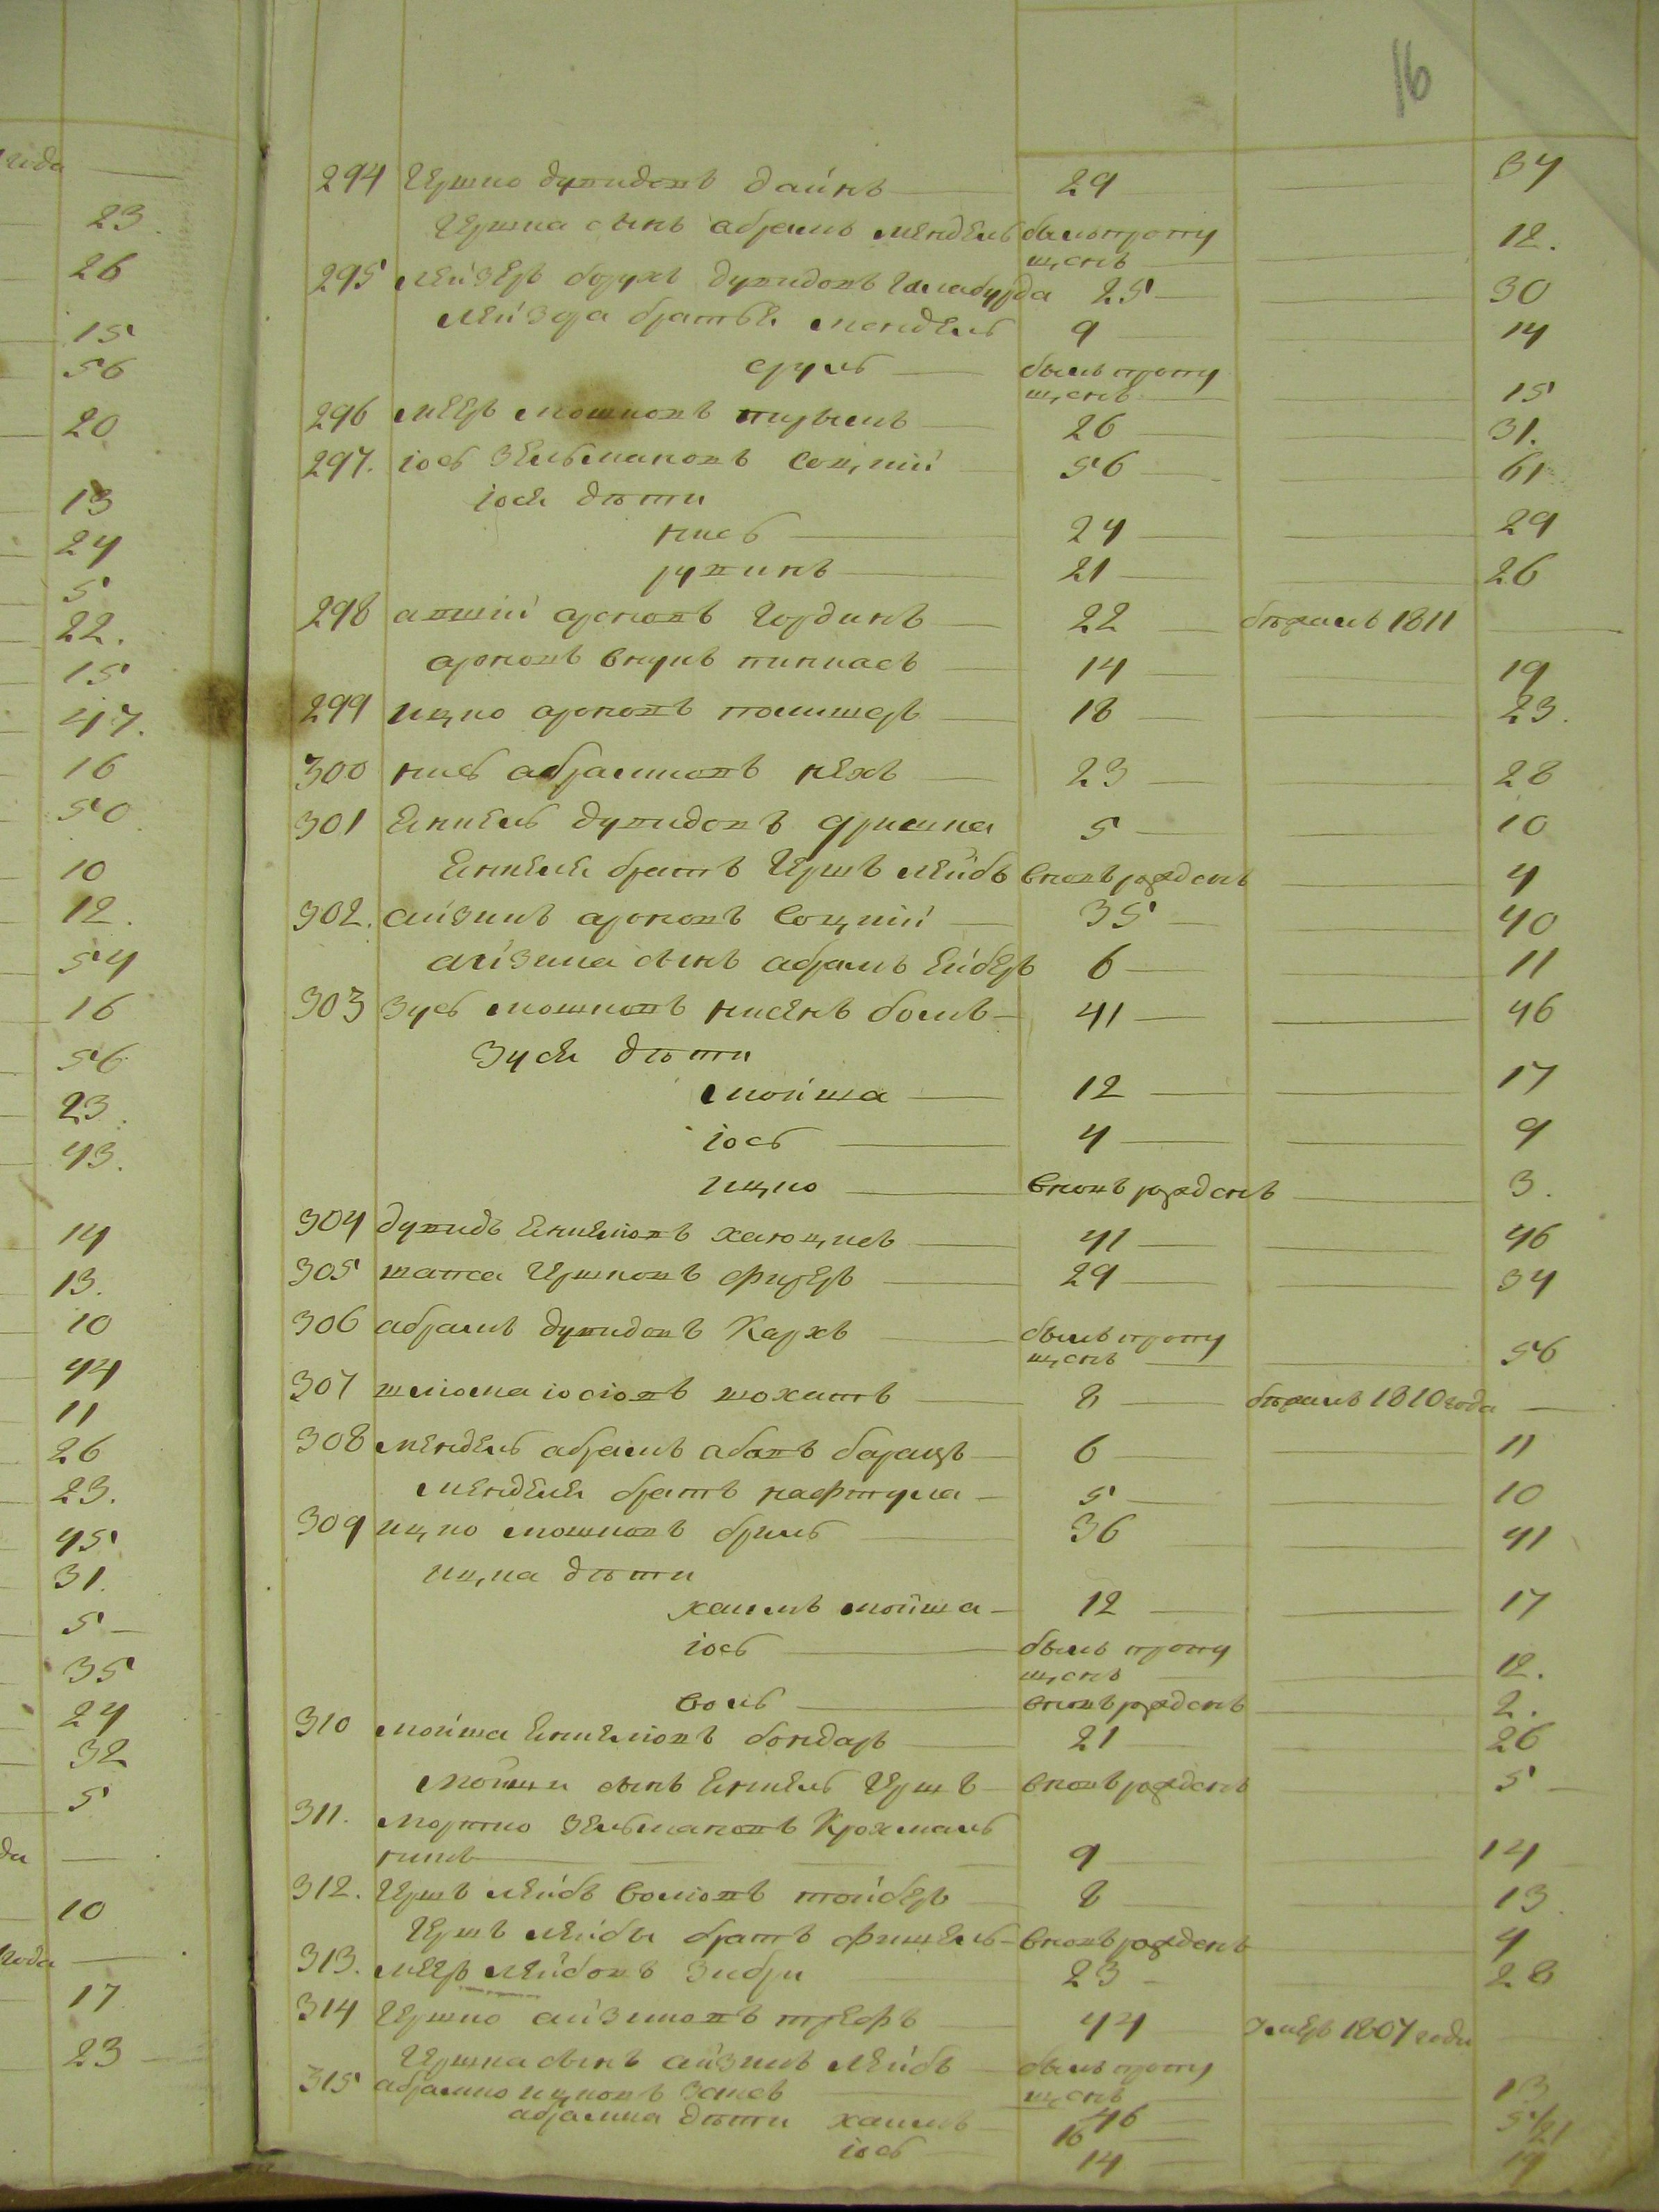 года
23.
26
15
56
20
13
24
5
22.
15
47.
16
50
10
12.
54
16
56
23.
43.
14
13.
10
44
11
26
23.
45
31.
5
35
24
32
5
да
10
года
17
23
16
294 Гершко дувидовъ даинъ 29 34
Гершка сынъ абрамъ мендель былъ пропу 12.
щенъ
295 лейзеръ борухъ дувидовъ галабурда 25 30
лейзера братья мендель 9 14
сруль былъ пропу
щенъ 15
296 мееръ мошковъ 26 31.
297. іось зельмановъ соцкій 56 61
іося дѣти
кись 24 29
рувинъ 21 26
298 овшій ароновъ гординъ 22 бѣжалъ 1811
ароновъ внукъ пинкасъ 14 19
299 ицко ароновъ полишеръ 18 23.
300 кись абрамковъ кехъ 23 28
301 Янкель дувидовъ фришка 5 10
Янкеля братъ гершъ лейбъ вновь рожденъ 4
302. айзикъ ароновъ соцкій 35 40
айзика сынъ абрамъ лейберъ 6 11
303 зусь мошковъ кисенъ боимъ 41 46
зуся дѣти
мойша 12 17
іось 4 9
ицко вновь рожденъ 3.
304 дувидъ Янкеліовъ хаюцкеъ 41 46
305 шапса гершковъ фиреръ 29 34
306 абрамъ дувидовъ Кархъ былъ пропу
щенъ 56
307 шліома іосіовъ шохатъ 8 бѣжалъ 1810 года
308 мендель абрамъ абовъ баращъ 6 11
менделя братъ нафтула 5 10
309 ицко мошковъ бриль 36 41
ицка дѣти
хаимъ мойша 12 17
іось былъ пропу
щенъ 12.
воль вновь рожденъ 2.
310 мойша Янкеліовъ бондаръ 21 26
мойши сынъ Янкель гершъ вновь рожденъ 5
311. мортко зельмановъ Крохмаль
никъ 9 14
312. гершъ лейбъ воліовъ тойберъ 8 13
гершъ лейбы братъ фишель вновь рожденъ 4
313. мееръ лейбовъ зибри 23 28
314 Гершко айзиковъ трефъ 44 умеръ 1807 года
Гершка сынъ айзикъ лейбъ былъ пропу
щенъ 13
315 абрамко ицковъ 46 51
абрамка дѣти хаимъ 16 21
іось 14 19